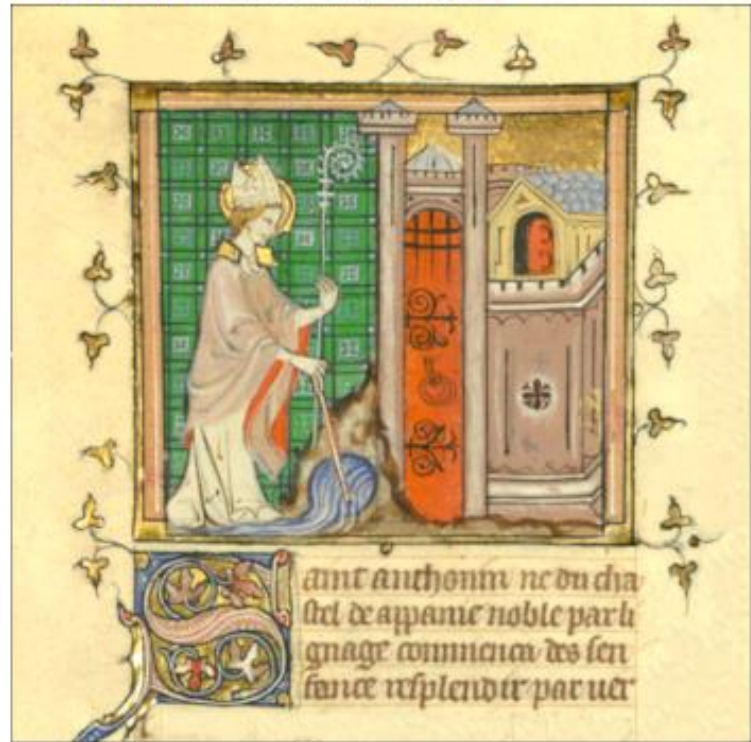 Saint anthonin ne du cha
stel de appame noble par li
gnage commenca des sen
fance resplendir par uer